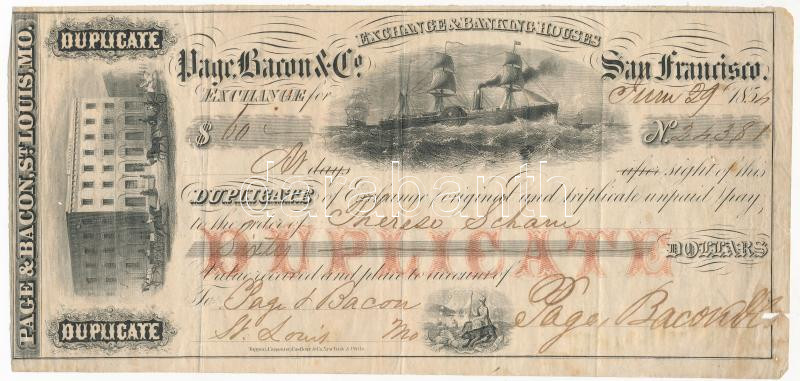 PAGE & BACON, ST. LOUIS, MO.
DUPLICATE
EXCHANGE & BANKING HOUSES
Page, Bacon & Co. San Francisco.
EXCHANGE for June 29 1854
$ 60 No. 24381
At days after sight of this
DUPLICATE of Exchange (original and triplicate unpaid) pay,
to the order of Therese Scharr
Sixty DOLLARS
DUPLICATE
Value received and place to account of
To Page & Bacon Page, Bacon & Co
St. Louis Mo
DUPLICATE
Toppan, Carpenter, Casilear & Co. New York & Phila.
darabanth